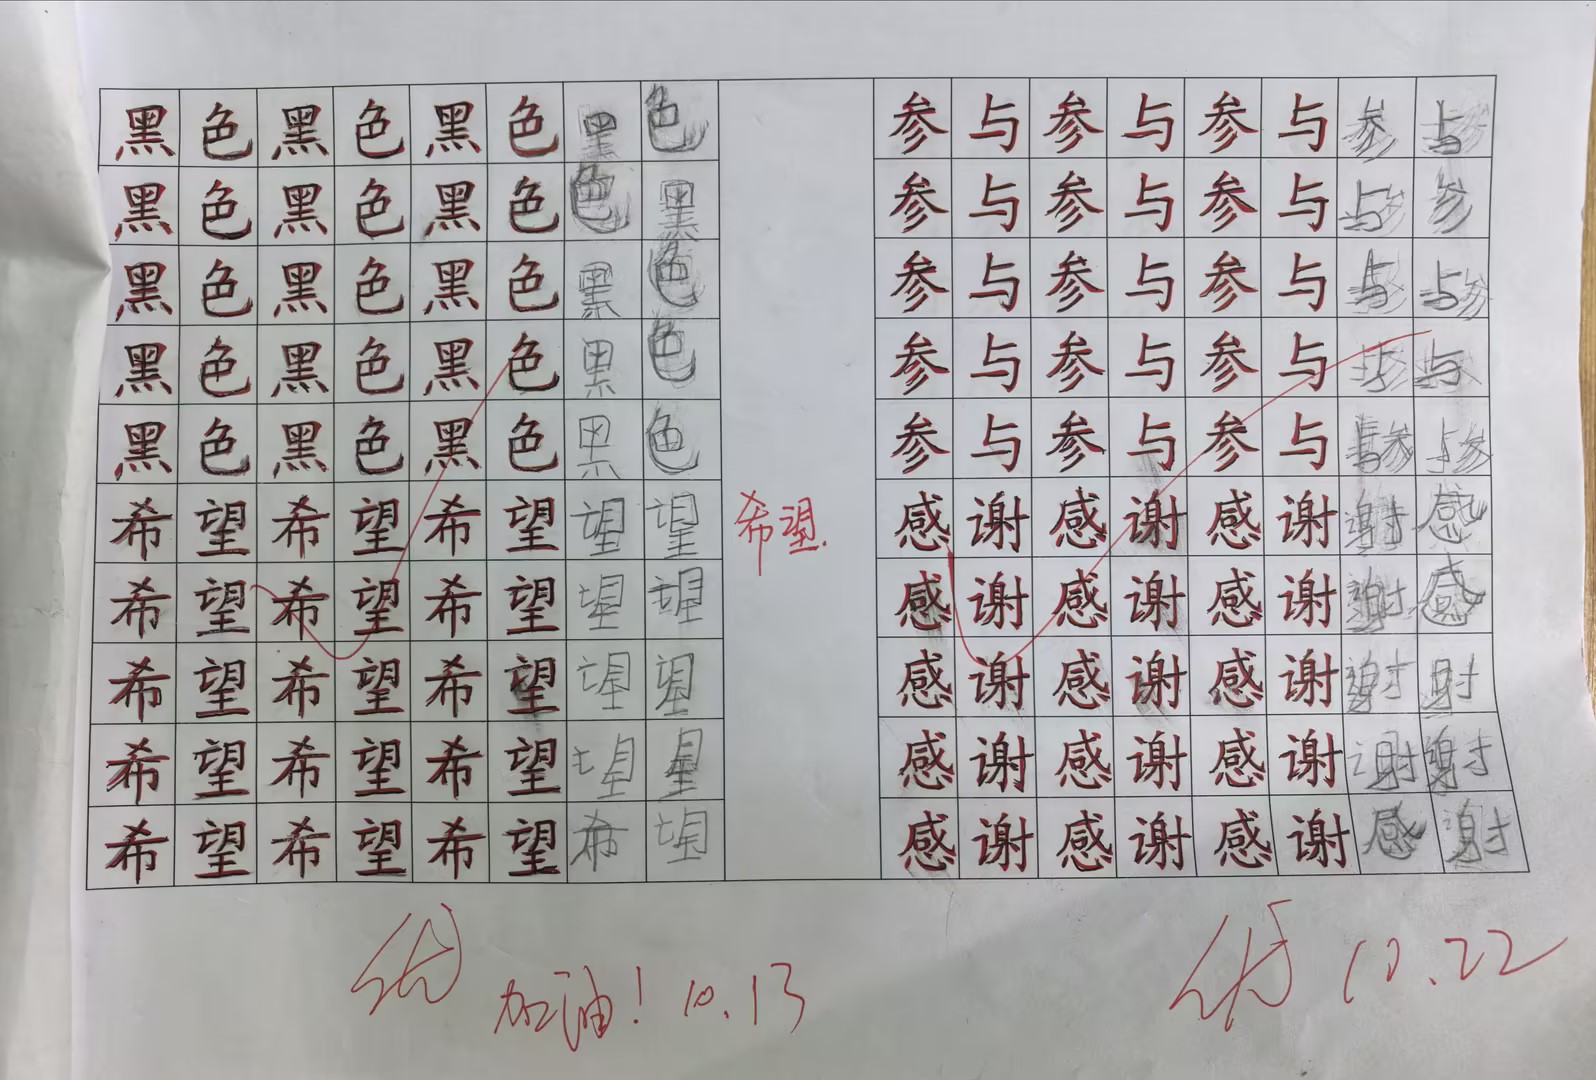 黑色黑色黑色黑色
黑色黑色黑色色黑
黑色黑色黑色黑色
黑色黑色黑色黑色
黑色黑色黑色黑色
希望希望希望望望
希望
希望希望希望望望
希望希望希望望望
希望希望希望望望
希望希望希望希望
优 加油！10.13
参与参与参与参与
参与参与参与与参
参与参与参与与与参
参与参与参与与参与
参与参与参与与参与参
感谢感谢感谢谢感
感谢感谢感谢谢感
感谢感谢感谢谢射
感谢感谢感谢谢谢
感谢感谢感谢感谢
优 10.22